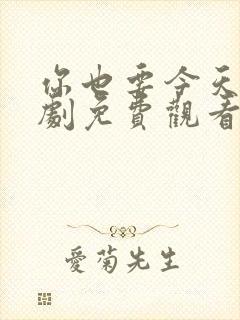 你也要今天
劇免費觀看
愛菊先生